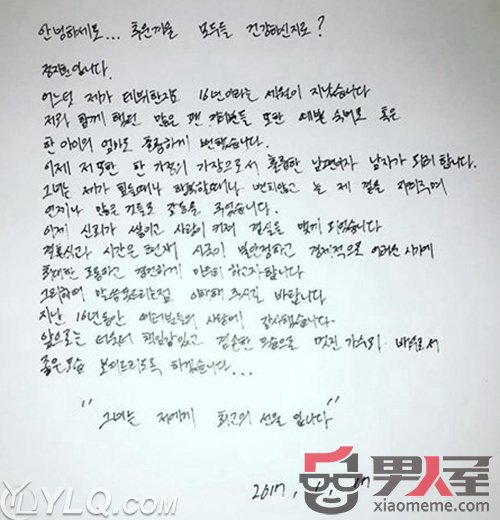 안녕하세요... 추운겨울 모두들 건강하신지요?
정지훈입니다.
어느덧 제가 데뷔한지 16년이라는 세월이 지났습니다
저와 함께 했던 많은 팬 여러분들 또한 숙녀로 혹은
한 아이의 엄마로 변했습니다.
이제 저 또한 한 가정의 가장으로서 훌륭한 남편이자 남자가 되려 합니다.
그녀는 제가 힘들때나 행복할때나 변치않고 늘 제 곁을 지켜주며
언제나 많은 것들로 감동을 주었습니다.
이제 신뢰가 쌓이고 사랑이 커져 결실을 맺게 되었습니다
결혼식과 시간은 현재 시국이 불안정하고 경제적으로 어려운 시기에
최대한 조용하고 경건하게 하고자합니다
그리하여 이해해 주시길 바랍니다
지난 16년동안 여러분들의 사랑에 감사했습니다.
앞으로는 더욱더 책임감있고 겸손한 모습으로 멋진 가수와 배우로서
좋은모습 보여드리도록 하겠습니다...
"그녀는 저에게 최고의 선물 입니다"
2017. 1. 17
YLQ.COM
男人屋
xiaomeme.com